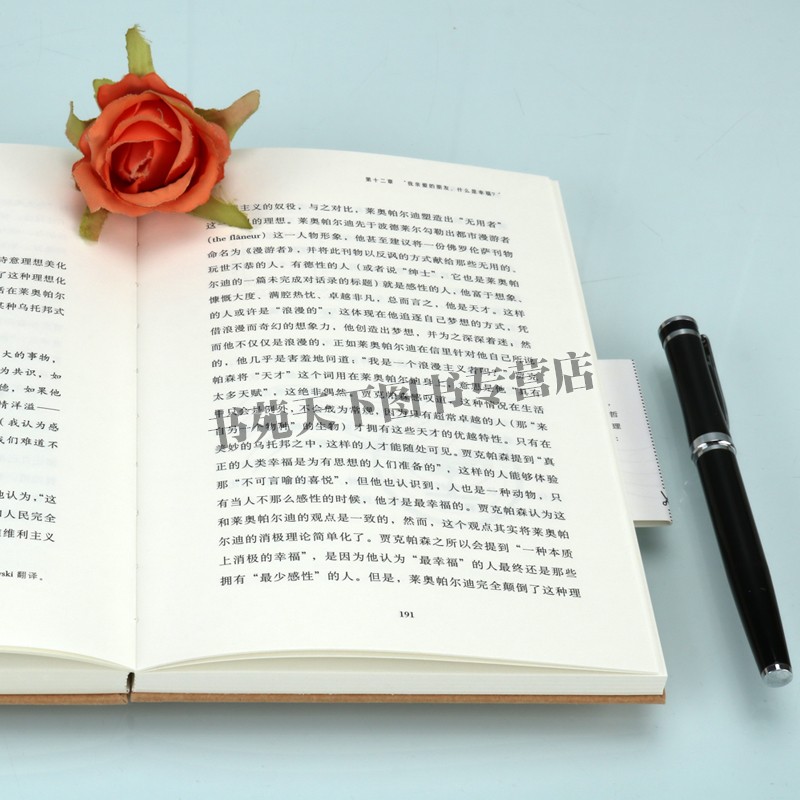 诗意理想美化
了这种理想化
活在莱奥帕尔
某种乌托邦式
大的事物，
为共识，如
德，如果他
情洋溢——
（我认为感
我们难道不
他认为，“这
和人民完全
维利主义
vski 翻译。
第十二章 “我亲爱的朋友，什么是幸福？”
主义的奴役，与之对比，莱奥帕尔迪塑造出“无用者”
这一 的理想。莱奥帕尔迪先于波德莱尔勾勒出都市漫游者
(the flâneur) 这一人物形象，他甚至建议将一份佛罗伦萨刊物
命名为《漫游者》，并将此刊物以反讽的方式献给那些无用的、
玩世不恭的人。有德性的人（或者说“绅士”，它也是莱奥帕
尔迪的一篇未完成对话录的标题）就是感性的人，他富于想象、
慷慨大度、满腔热忱、卓越非凡，总而言之，他是天才。这样
的人或许是“浪漫的”，这体现在他追逐自己梦想的方式，凭
借浪漫而奇幻的想象力，他创造出梦想，并为之深深着迷；然
而他不仅仅是浪漫的，正如莱奥帕尔迪在信里针对他自己所说
的，他几乎是害羞地问道：“我是一个浪漫主义者
帕森将“天才”这个词用在莱奥帕尔迪身上，意思是他“具有
太多天赋”，这绝非偶然。贾克帕森感叹道，“这种情况在生活
中只会是例外，不会成为常规，因为只有超常卓越的人（那‘来
自另一个物种’的生物）才拥有这些天才的优越特性。只有在
美妙的乌托邦之中，这样的人才能随处可见。贾克帕森提到“真
正的人类幸福是为有思想的人们准备的”，这样的人能够体验
那“不可言喻的喜悦”，但他也认识到，人也是一种动物，只
有当人不那么感性的时候，他才是最幸福的。贾克帕森认为这
和莱奥帕尔迪的观点是一致的，然而，这个观点其实将莱奥帕
尔迪的消极理论简单化了。贾克帕森之所以会提到“一种本质
上消极的幸福”，是因为他认为“最幸福”的人最终还是那些
拥有“最少感性”的人。但是，莱奥帕尔迪完全颠倒了这种理
191
哲理：
书苑天下图书专营店